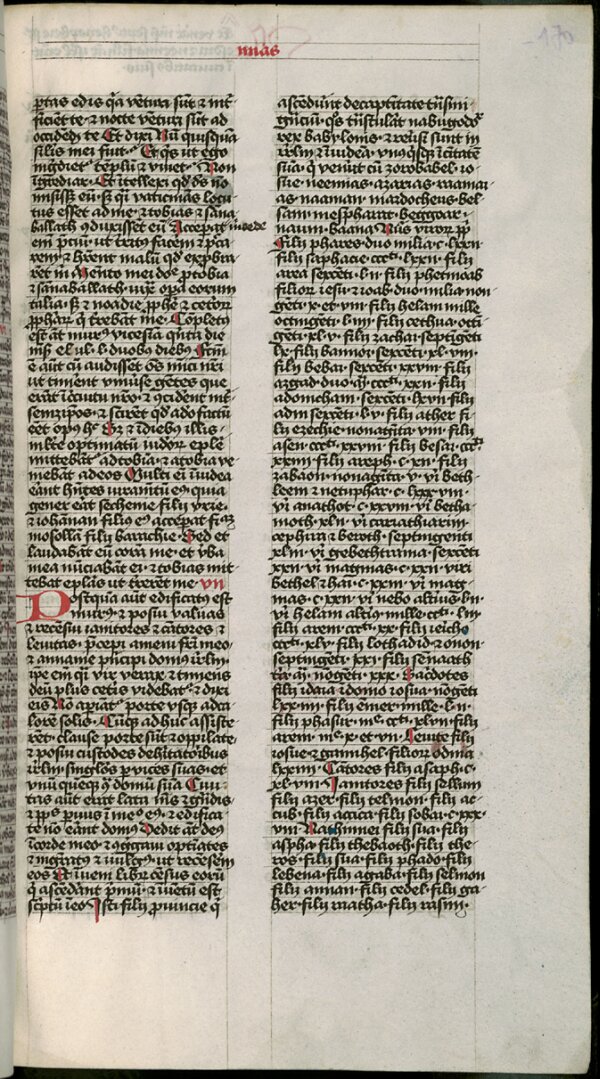 mias
portas edis q̄a ventura sūt ⁊ int̄
ficient te ⁊ nocte ventura sūt ad
occidēdū te Et dixi Nū quisquā
silis mei fuit Et q̄s ut ego
ingrediet̄ templū ⁊ vivet Non
īgrediar Et ītellexi qd̄ dn̄s nō
misisset eū s̄ q̄i vaticinās locu
tus esset ad me ⁊ tobias ⁊ sana
ballath ꝯduxisset eū Accepat
em̄ p̄ciū ut territus facerē ⁊ pcca
rem ⁊ hr̄ent malū qd̄ exprobra
rēt in Memento mei dn̄e p tobia
⁊ sanaballath iuxta opa eorum
talia s̄ ⁊ noadie prophē ⁊ ceteror
prophar̄ q̄ t̄rebāt me Cōpletus
est āt murus vicesīa q̄nta die
mēs elul l duobus diebus Fcm̄
ē aūt cū audissēt om̄s inimici nr̄i
ut timerēt vniuse gētes que
erāt ī circuitu nr̄o ⁊ ꝯciderēt int̄
semetipsos ⁊ scirēt qd̄ a deo factū
eēt opus hoc Sed ⁊ ī diebus illis
multe optimatū iudeor̄ eple
mittebāt̄ ad tobiā ⁊ a tobia ve
niebāt ad eos Multi em̄ ī iudea
erant hn̄tes iuramentū eius quia
gener erat sechenie filii vrie
⁊ iohanan filius eius acceperat filiā
mosollā filii barachie Sed et
laudabāt eū corā me et v̄ba
mea nūciabāt ei ⁊ tobias mit
tebat eplas ut t̄reret me VII
Postquā aūt edificatus est
murus ⁊ posui valuas
⁊ recēsui ianitores ⁊ cātores ⁊
levitas p̄cepi aneni fr̄i meo
⁊ ananie p̄ncipi domus irl̄m
ipe em̄ q̄i vir verax ⁊ timens
deū plus cet̄is videbat̄ ⁊ dixi
eis Nō apiāt̄ porte vsq̄ ad ca
lorē solis Cūq̄ adhuc assiste
rēt clause porte sūt ⁊ oppilate
⁊ posui custodes de hītatoribus
irl̄m singlos p vices suas et
vnū quēq̄ ꝯ domū suā Ciui
tas aūt erat lata nīs ⁊ gn̄dis
⁊ ppls puus ī medio eius ⁊ ñ edifica
te nō erant domus Dedit āt deus
ī corde meo ⁊ ꝯgregavi optimates
⁊ magratus ⁊ vulgus ut recēserem
eos Et ī ueni libr̄ census eorū
q̄ ascederant p̄mū ⁊ īuetū est
scptū ī eo Isti filii prouincie q̄
ascēderunt de captiuitate t̄nsmi
grātiū q̄s t̄nstulat nabugodo
rex babylonis ⁊ reuersi sunt in
irl̄m ⁊ iudea vnus q̄sq̄ ī ciuitatē
suā q̄ venerūt cū zorobabel io
sue neemias azarias raamai
as naaman mardocheus bel
sam mespharat beggoar
naum baana Nūs viror̄ ppl̄i
filii phares duo milia c lxxii
filii saphacie ccctⁱ lxxii filii
area sexcēti lii filii phetmoab
filior̄ iesu ⁊ ioab duo milia non
gēti x et viii filii helam mille
octingēti l iiii filii cethua octi
gēti xl v filii zachai septigēti
lx filii bannoi sexcēti xl viii
filii bebai sexcēti xxviii filii
azgad duo m̄ ccctⁱ xxii filii
adonicham sexcēti lxvii filii
adin sexcēti l v filii ather fi
lii ezechie nonagīta viii filii
asen ccctⁱ xxviii filii besai ccctⁱ
xxiiii filii areph c xii filii
zabaon nonagīta v vi beth
leem ⁊ netuphar c lxxxviii
vi anathot c xxviii vi betha
moth xlii vi cariathiarim
cephira ⁊ beroth septingenti
xliii vi gebethrama sexcēti
xxii vi magmas c xxii viri
bethel ⁊ hai c xxiii vi mag
mas c xxii vi nebo alterius lii
vi helam alterius mille cctⁱ liiii
filii arem ccctⁱ xx filii iericho
ccctⁱ xlv filii loth adid ⁊ onon
septingēti xxi filii senaath
tria m̄ nōgēti xxx Sacdotes
filii idaia ī domo iosua nōgēti
lxxiii filii emer mille lii
filii phasur mᵉ cctⁱ xlvii filii
arem mᵉ x et vii Leuite filii
iosue ⁊ gamihel filior̄ odma
lxxiiii Cātores filii asaph c
xl viii Janitores filii sellum
filii azer filii telmon filii ac
cub filii accita filii sobai c xxx
viii Nathinnei filii sua filii
aspha filii thebaoth filii the
ros filii sua filii phado filii
lebena filii agaba filii selmon
filii annan filii cedel filii ga
her filii ratha filii rasim